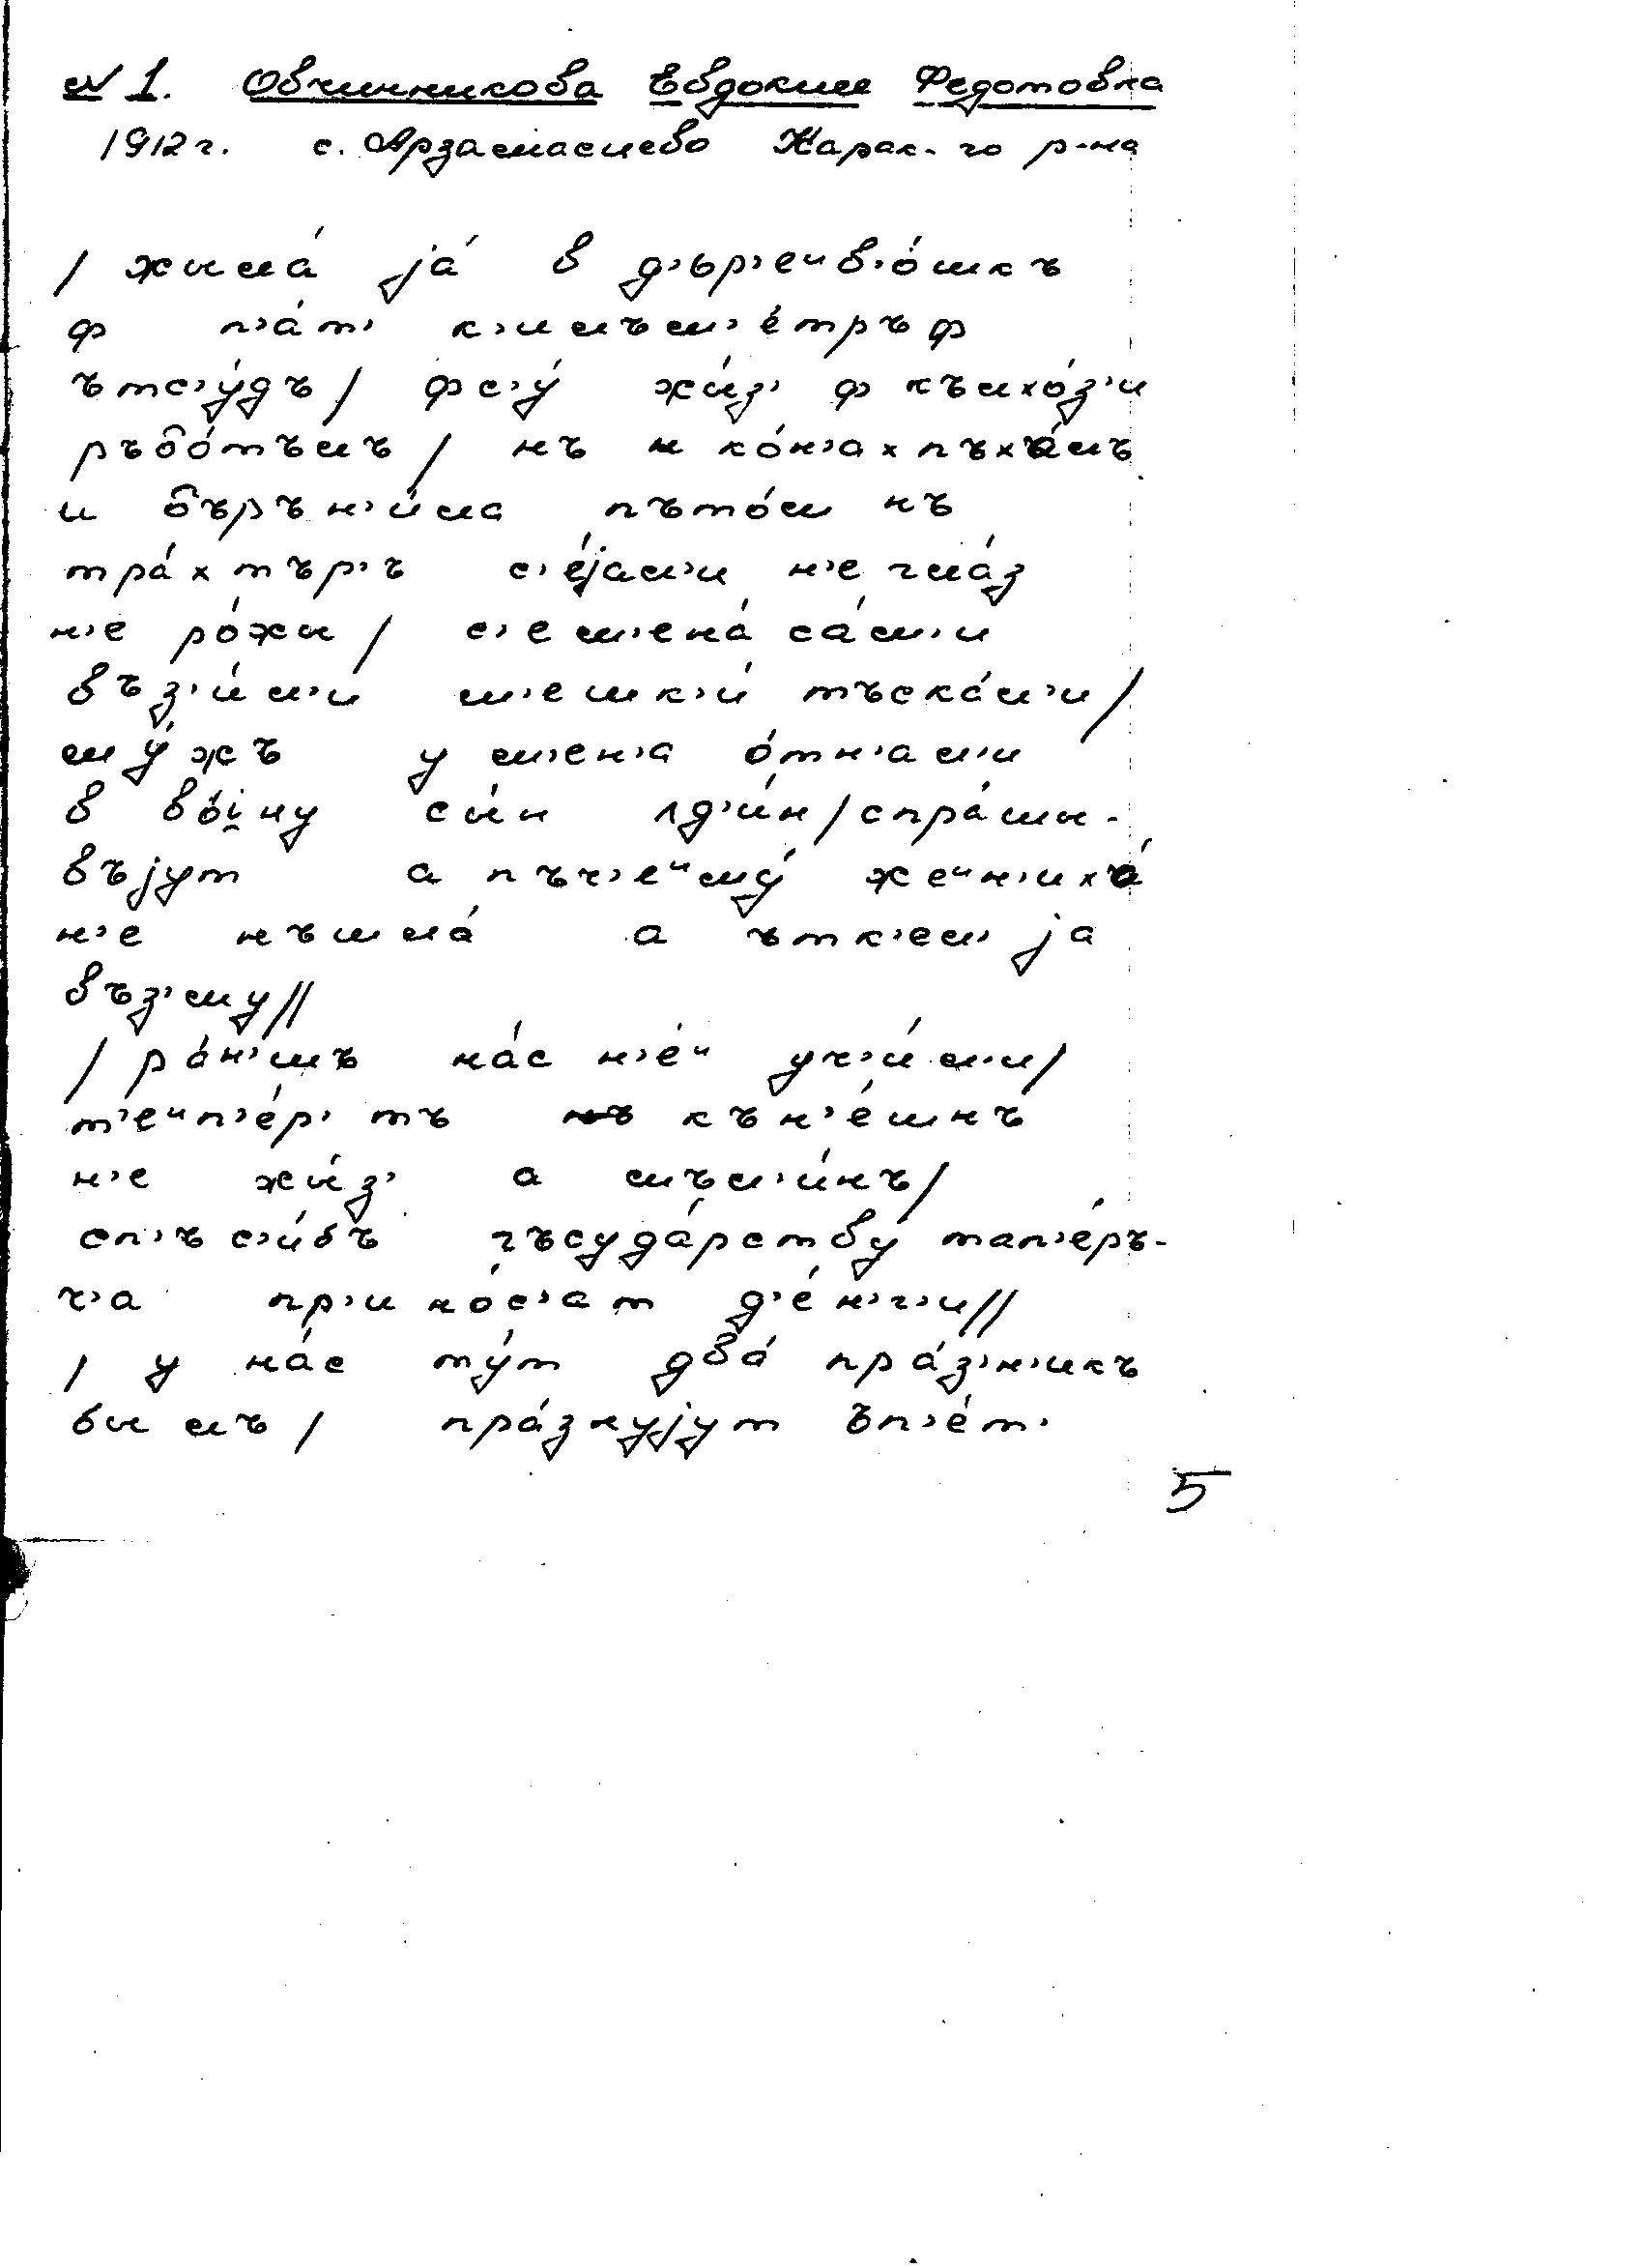 № 1. Овчинникова Евдокия Федотовна
1912 г. с. Арзамасцево Карак-го р-на
/ жыла́ jа́ в д'ьр'еᵘв'о́шкъ
ф п'а́т' к'илъм'е́тръф
ътс'у́дъ / фс'у́ жы́з' ф кълхо́з'и
ръбо́тълъ / нъ ко́н'ах пъха́лъ
и бърън'и́ла пъто́м нъ
тра́хтър'ъ с'е́jал'и н'е гла́з
н'е ро́жы / с'ем'ена́ са́м'и
въз'и́л'и м'ешк'и́ тъска́л'и /
му́жъ у м'ен'а о́тн'ал'и
в во́i̯ну сы́н ʌд'и́н / спра́шы-
въjут а пъч'еᵘму́ жеᵘн'иха́
н'е нъшла́ а ътк'ел' jа
въз'му //
/ ра́н'шъ на́с н'е́ᵘ уч'и́л'и /
т'еᵘп'е́р' тъ кън'е́шнъ
н'е жы́з' а мъл'и́нъ /
сп'ъс'и́бъ гъсуда́рству́ тап'е́ръ-
ч'а пр'ино́с'ат д'е́н'г'и //
/ у на́с ту́т два́ пра́з'н'икъ
былъ / пра́знуjут ъп'е́т'
5